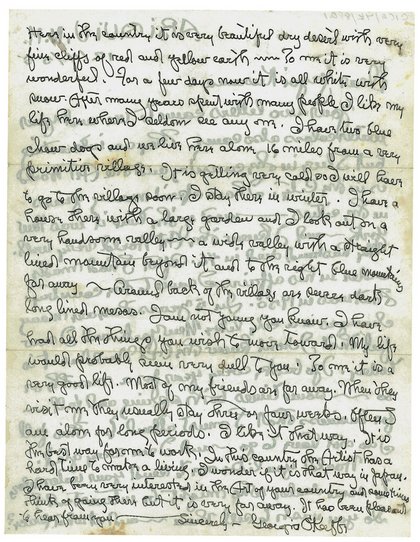 Here in the country it is very beautiful dry desert with very
fine cliffs of red and yellow earth — To me it is very
wonderful. For a few days now it is all white with
snow. After many years spent with many people I like my
life here where I seldom see any one. I have two blue
chow dogs and we live here alone 16 miles from a very
primitive village. It is getting very cold so I will have
to go to the village soon. I stay there in winter. I have a
house there with a large garden and I look out on a
very handsome valley — a wide valley with a straight
lined mountain beyond it and to the right blue mountains
far away ~ Around back of the village are seven dark
long lined mesas. I am not young you know. I have
had all the things you wish to move toward. My life
would probably seem very dull to you. To me it is a
very good life. Most of my friends are far away. When they
visit me they usually stay three or four weeks. Often I
am alone for long periods. I like it that way. It is
the best way for me to work. In this country the Artist has a
hard time to make a living. I wonder if it is that way in Japan.
I have been very interested in the Art of your country and sometimes
think of going there but it is very far away. It has been pleasant
to hear from you — Sincerely — Georgia O'Keeffe